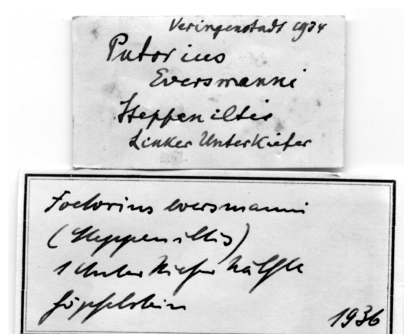 Veringenstadt 1934
Putorius
Eversmanni
Steppeniltis
Linker Unterkiefer
Foetorius eversmanni
(Steppeniltis)
1 Unterkieferhälfte
Göpfelstein
1936